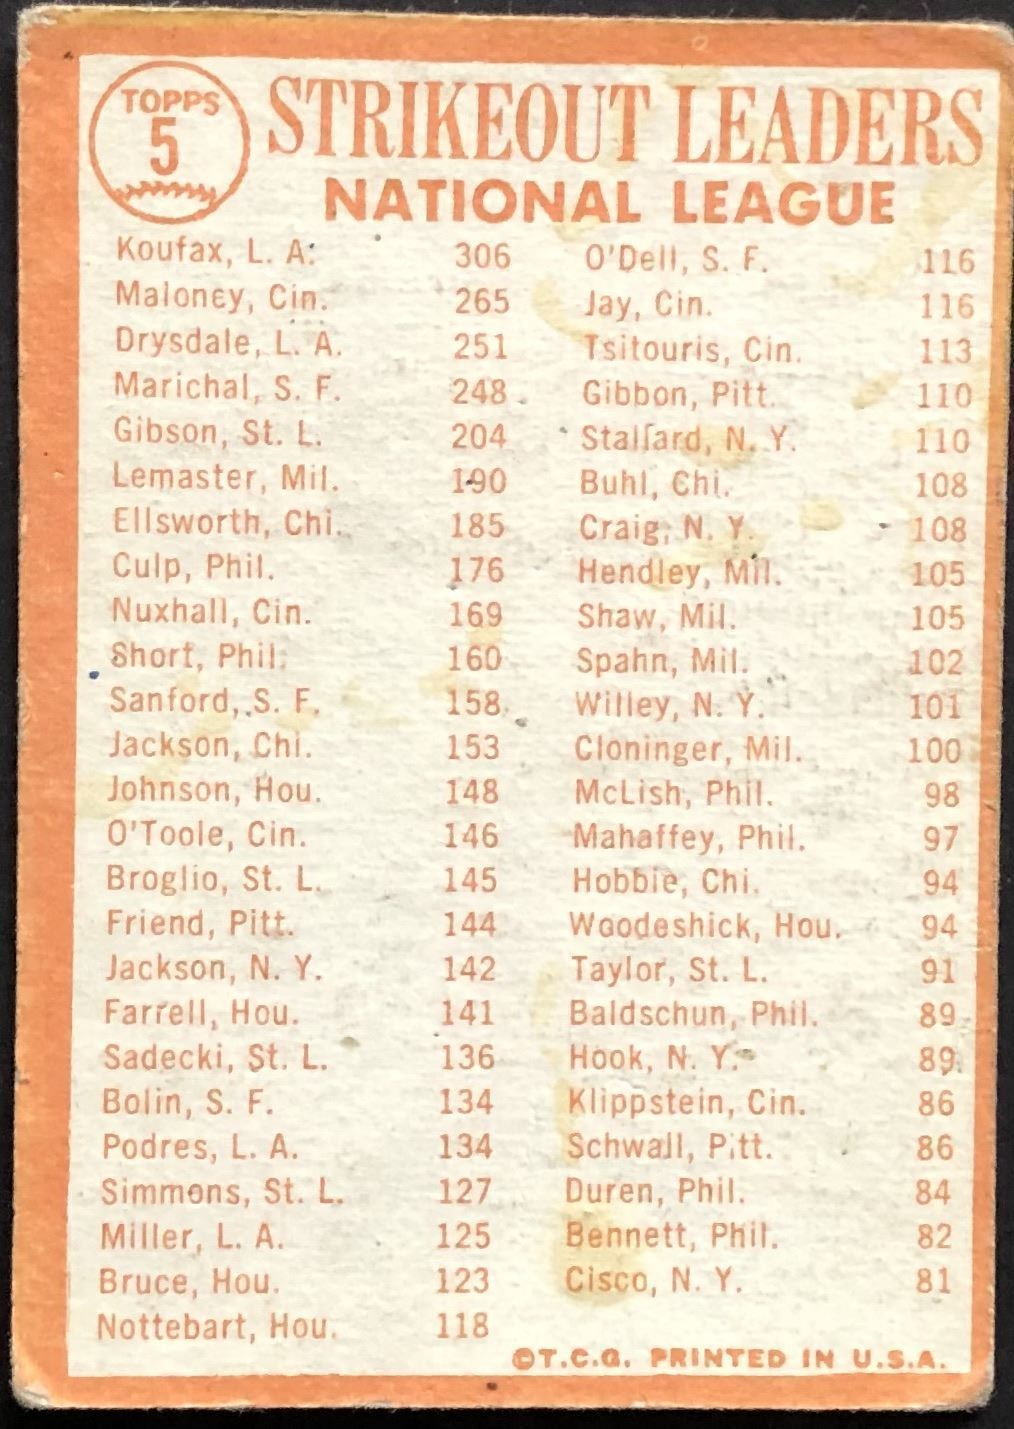 TOPPS
5
STRIKEOUT LEADERS
NATIONAL LEAGUE
Koufax, L. A. 306
Maloney, Cin. 265
Drysdale, L. A. 251
Marichal, S. F. 248
Gibson, St. L. 204
Lemaster, Mil. 190
Ellsworth, Chi. 185
Culp, Phil. 176
Nuxhall, Cin. 169
Short, Phil. 160
Sanford, S. F. 158
Jackson, Chi. 153
Johnson, Hou. 148
O'Toole, Cin. 146
Broglio, St. L. 145
Friend, Pitt. 144
Jackson, N. Y. 142
Farrell, Hou. 141
Sadecki, St. L. 136
Bolin, S. F. 134
Podres, L. A. 134
Simmons, St. L. 127
Miller, L. A. 125
Bruce, Hou. 123
Nottebart, Hou. 118
O'Dell, S. F. 116
Jay, Cin. 116
Tsitouris, Cin. 113
Gibbon, Pitt. 110
Stallard, N. Y. 110
Buhl, Chi. 108
Craig, N. Y. 108
Hendley, Mil. 105
Shaw, Mil. 105
Spahn, Mil. 102
Willey, N. Y. 101
Cloninger, Mil. 100
McLish, Phil. 98
Mahaffey, Phil. 97
Hobbie, Chi. 94
Woodeshick, Hou. 94
Taylor, St. L. 91
Baldschun, Phil. 89
Hook, N. Y. 89
Klippstein, Cin. 86
Schwall, Pitt. 86
Duren, Phil. 84
Bennett, Phil. 82
Cisco, N. Y. 81
©T.C.G. PRINTED IN U.S.A.